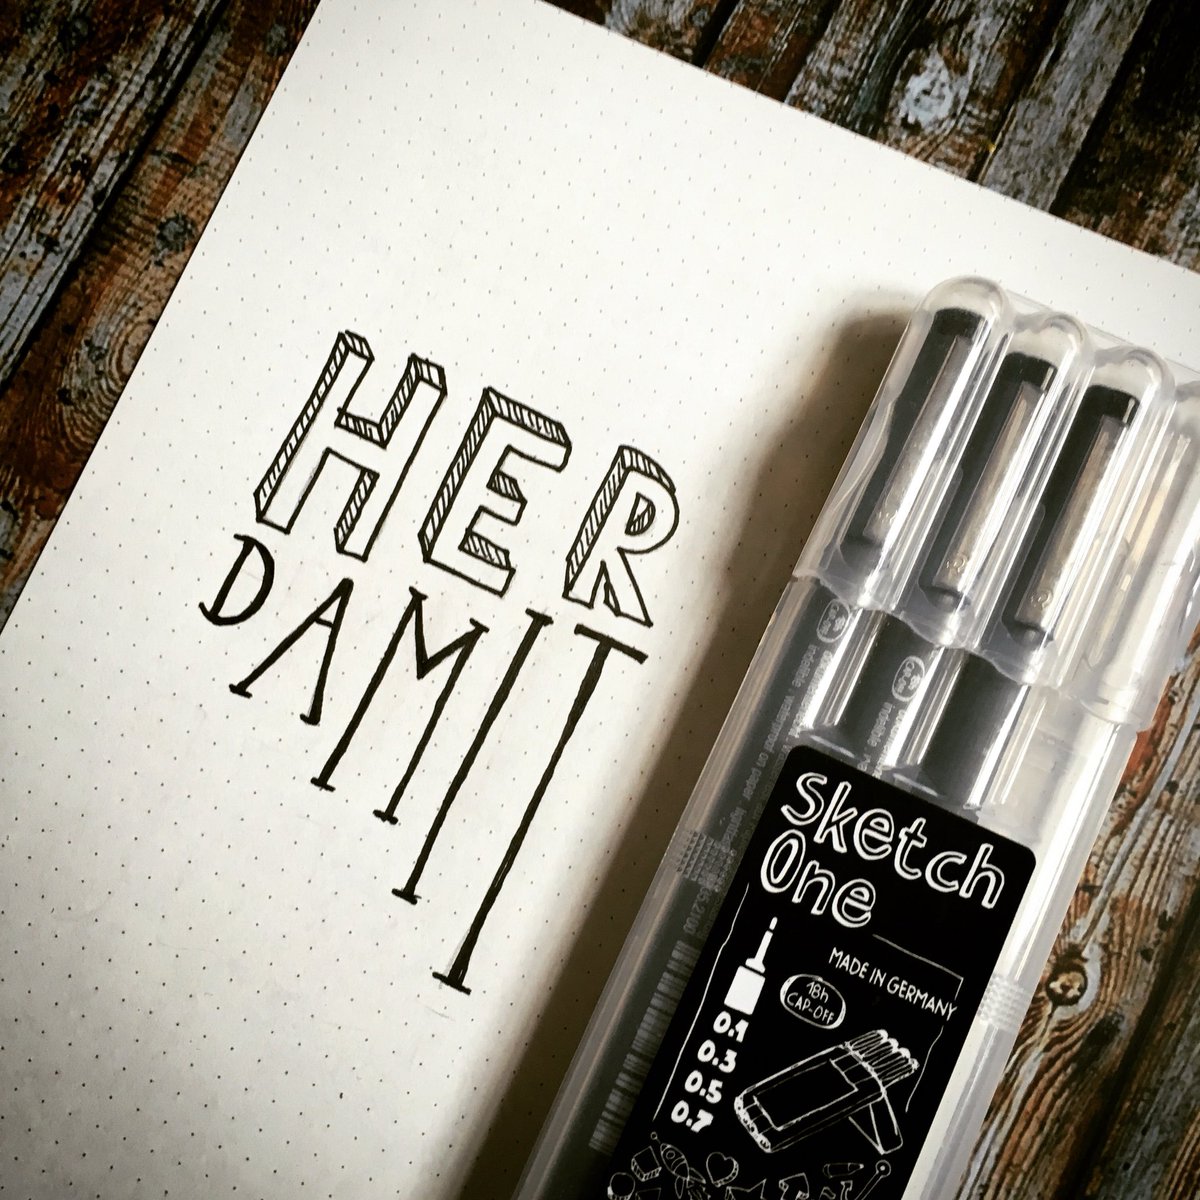 HER
DAMIT
Sketch
One
MADE IN GERMANY
18h
CAP-OFF
0.1
0.3
0.5
0.7